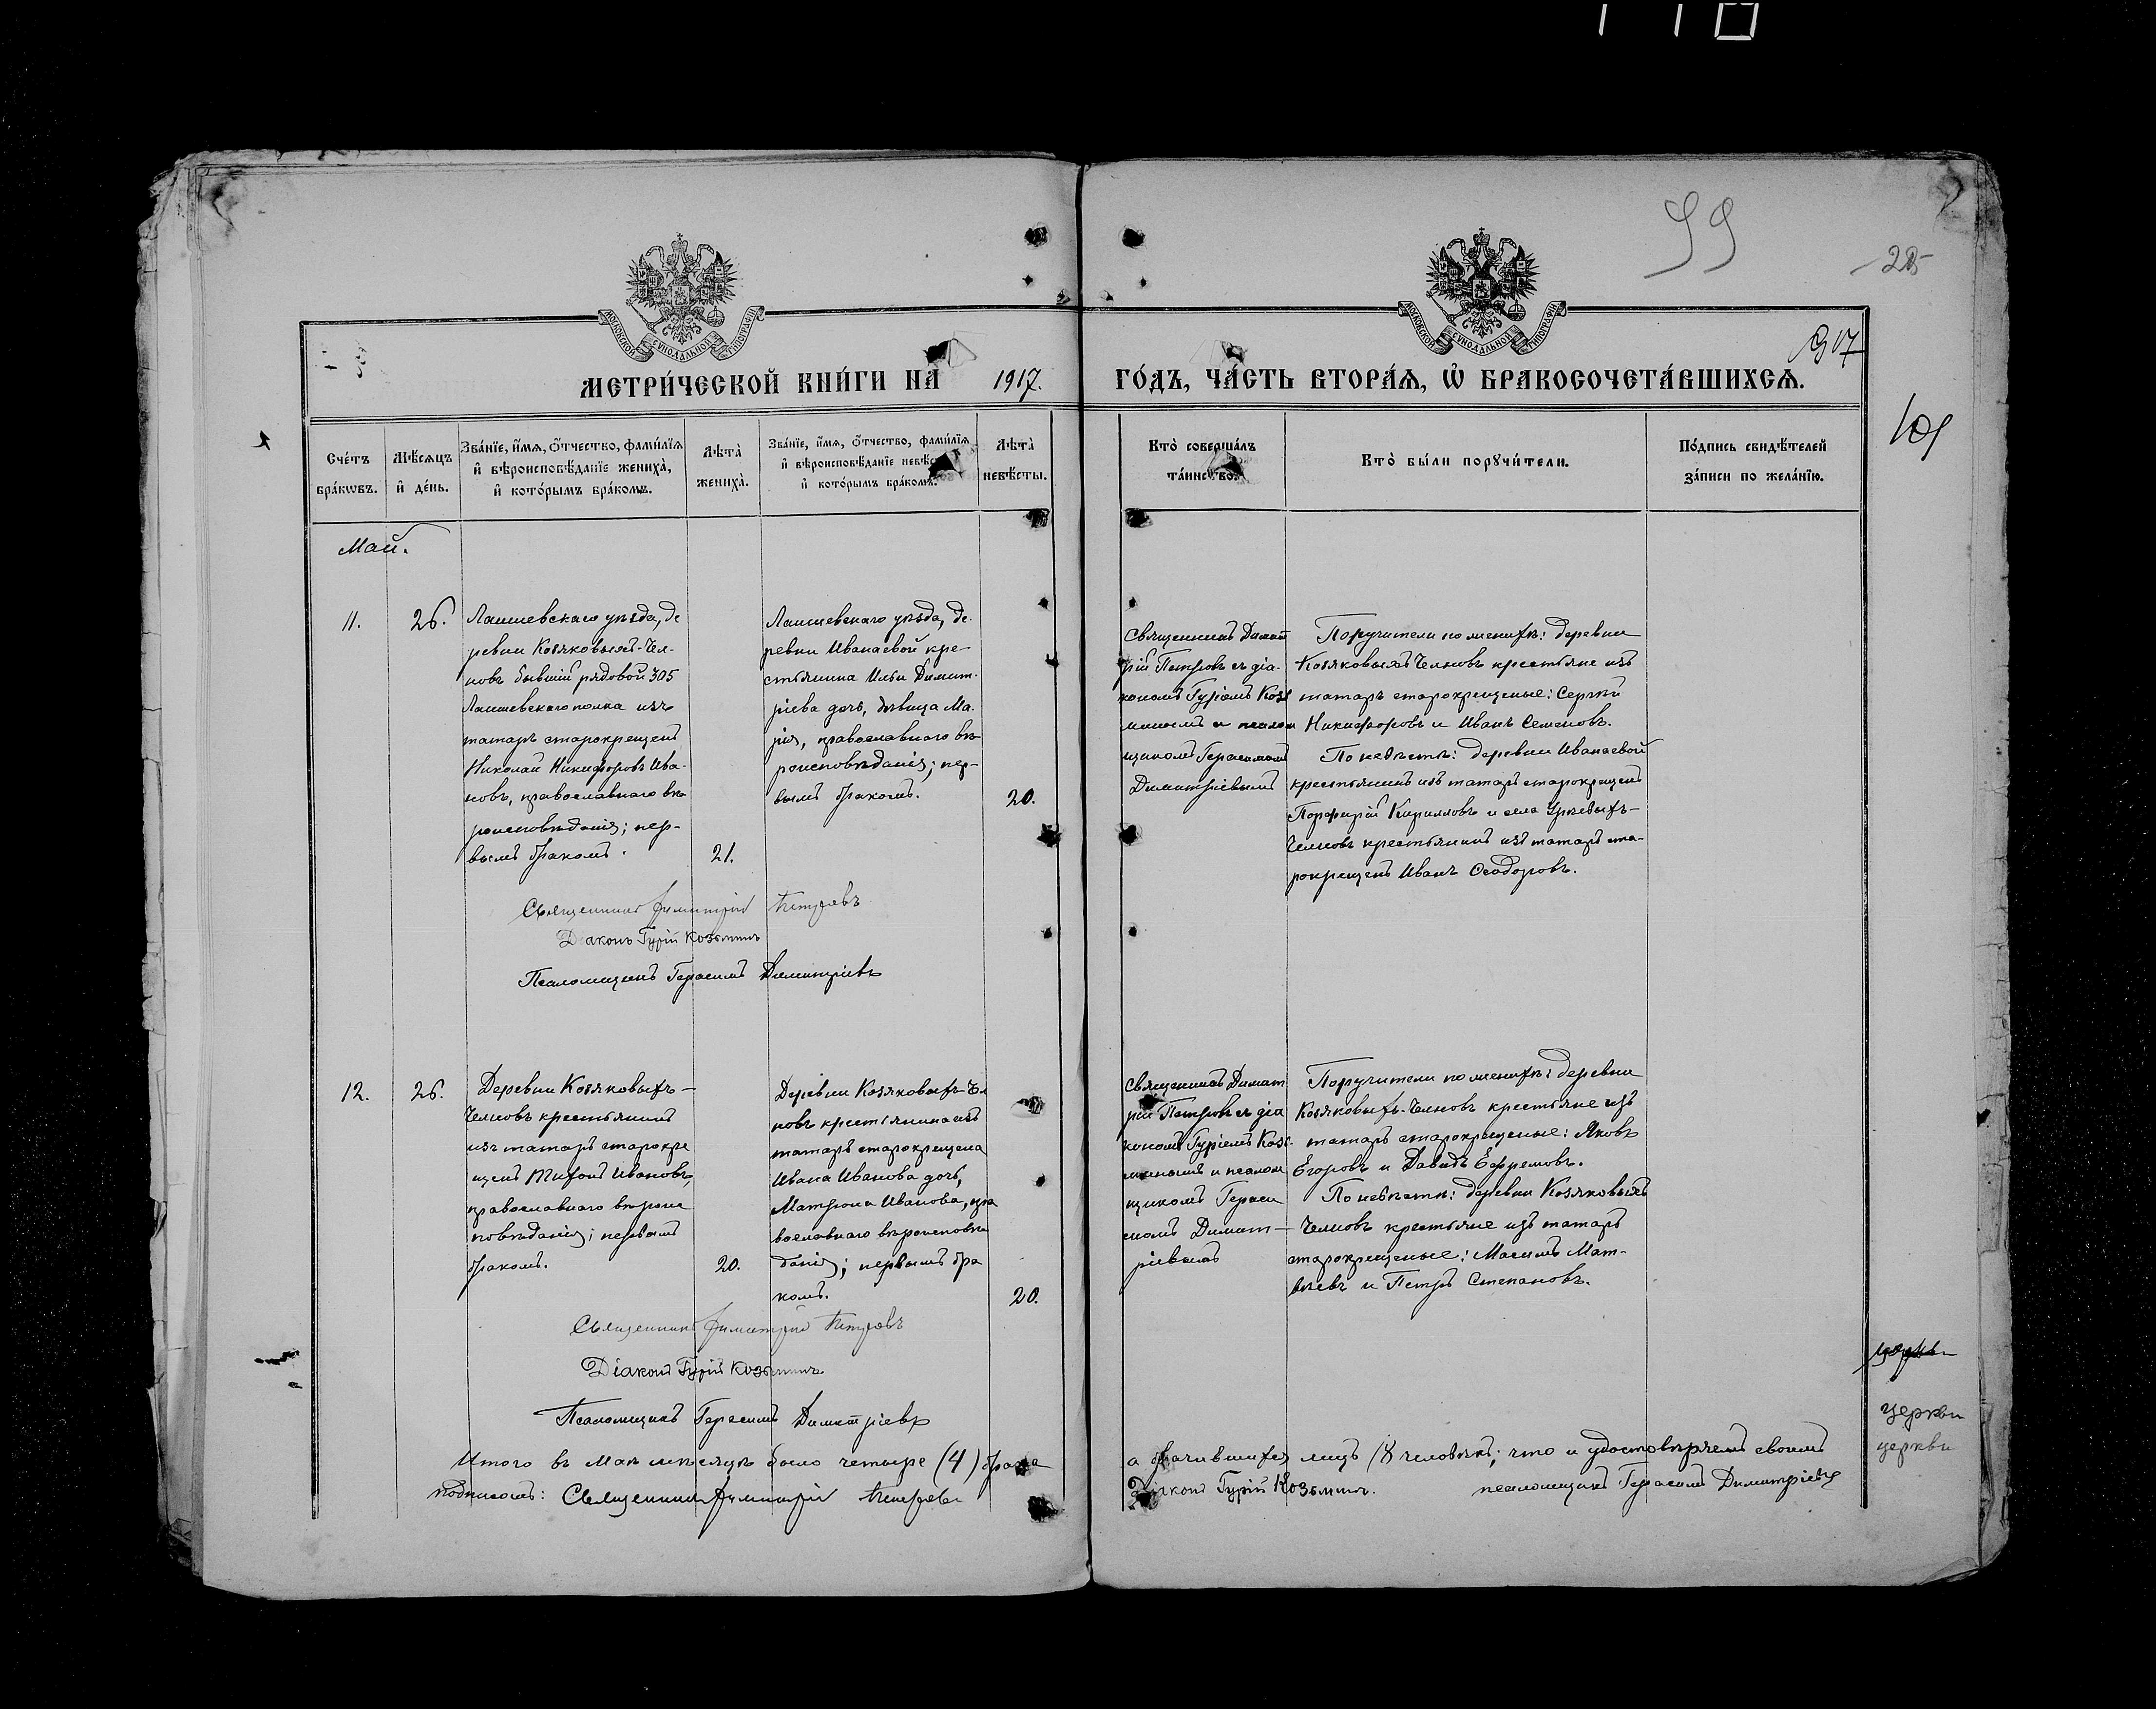 99
25
1917
МОСКОВСКОЙ СУНОДАЛЬНОЙ ТИПОГРАФІИ
МОСКОВСКОЙ СУНОДАЛЬНОЙ ТИПОГРАФІИ
МЕТРИ́ЧЕСКОЙ КНИ́ГИ НА 1917. ГО́ДЪ, ЧА́СТЬ ВТОРА́Я, Ѡ БРАКОСОЧЕТА́ВШИХСЯ.
Сче́тъ бра́кѡвъ.
Мѣ́сяцъ и де́нь.
Зва́нїе, и́мя, о́тчество, фами́лїя и вѣроисповѣ́данїе жениха̀, и кото́рымъ бра́комъ.
Лѣта̀ жениха̀.
Зва́нїе, и́мя, о́тчество, фами́лїя и вѣроисповѣ́данїе невѣ́сты и кото́рымъ бра́комъ.
Лѣта̀ невѣ́сты.
Кто̀ соверша́лъ та́инство.
Кто̀ бы́ли порꙋчи́тели.
По́дпись свидѣ́телей за́писи по жела́нїю.
Май.
11.
26.
Лаишевскаго уѣзда, де
ревни Козяковыхъ-Чел-
новъ бывшій рядовой 305
Лаишевскаго полка изъ
татаръ старокрещенъ
Николай Никифоровъ Ива-
новъ, православнаго вѣ
роисповѣданія; пер-
вымъ бракомъ.
21.
Лаишевскаго уѣзда, де-
ревни Иванаевой кре-
стьянина Ильи Димит-
ріева дочь, дѣвица Ма-
рія, православнаго вѣ
роисповѣданія; пер-
вымъ бракомъ.
20.
Священникъ Димит
рій Петровъ съ діа-
кономъ Гуріемъ Козь
минымъ и псалом
щикомъ Герасимомъ
Димитріевымъ
Поручители по женихѣ: деревни
Козяковыхъ Челновъ крестьяне изъ
татаръ старокрещеные: Сергѣй
Никифоровъ и Иванъ Семеновъ.
По невѣстѣ: деревни Иванаевой
крестьянинъ изъ татаръ старокрещенъ
Порфирій Кирилловъ и села Уркевыхъ-
Челновъ крестьянинъ изъ татаръ ста-
рокрещенъ Иванъ Ѳеодоровъ.
Священникъ Димитрій Петровъ
Діаконъ Гурій Козьминъ
Псаломщикъ Герасимъ Димитріевъ
12.
26.
Деревни Козяковыхъ-
Челновъ крестьянинъ
изъ татаръ старокре
щенъ Тихонъ Ивановъ,
православнаго вѣроис
повѣданія; первымъ
бракомъ.
20.
Деревни Козяковыхъ-Чел
новъ крестьянина изъ
татаръ старокрещена
Ивана Иванова дочь,
Матрона Иванова, пра
вославнаго вѣроисповѣ
данія; первымъ бра
комъ.
20.
Священникъ Димит
рій Петровъ съ діа
кономъ Гуріемъ Козь-
минымъ и псалом
щикомъ Гераси
момъ Димит-
ріевымъ
Поручители по женихѣ: деревни
Козяковыхъ-Челновъ крестьяне изъ
татаръ старокрещеные: Яковъ
Егоровъ и Давидъ Ефремовъ.
По невѣстѣ: деревни Козяковыхъ
Челновъ крестьяне изъ татаръ
старокрещеные: Максимъ Мат-
вѣевъ и Петръ Степановъ.
Священникъ Димитрій Петровъ
Діаконъ Гурій Козьминъ.
Псаломщикъ Герасимъ Димитріевъ
Итого въ Маѣ мѣсяцѣ было четыре (4) брака а брачившихся лицъ (8 человѣкъ; что и удостовѣряемъ своимъ
подписомъ: Священникъ Димитрій Петровъ Діаконъ Гурій Козьминъ. псаломщикъ Герасимъ Димитріевъ
церкви
церкви